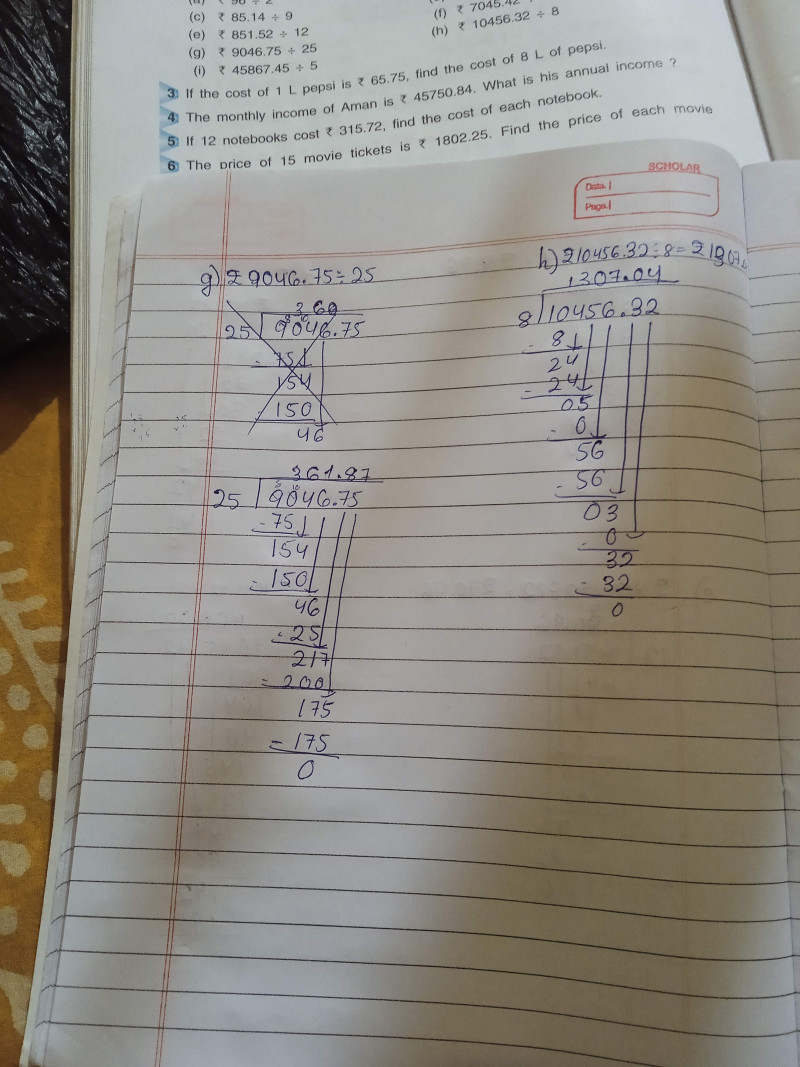 (c) ₹ 85.14 ÷ 9
(e) ₹ 851.52 ÷ 12
(f) ₹ 7045.42
(g) ₹ 9046.75 ÷ 25
(h) ₹ 10456.32 ÷ 8
(i) ₹ 45867.45 ÷ 5
3 If the cost of 1 L pepsi is ₹ 65.75, find the cost of 8 L of pepsi.
4 The monthly income of Aman is ₹ 45750.84. What is his annual income ?
5 If 12 notebooks cost ₹ 315.72, find the cost of each notebook.
6 The price of 15 movie tickets is ₹ 1802.25. Find the price of each movie
SCHOLAR
Date
Page
g) ₹ 9046.75÷25
360
25 9046.75
- 75
154
150
46
361.87
25 9046.75
- 75
154
- 150
46
- 25
217
- 200
175
- 175
0
h) ₹10456.32÷8=
1307.04
8 10456.32
- 8
24
- 24
05
- 0
56
- 56
03
- 0
32
- 32
0